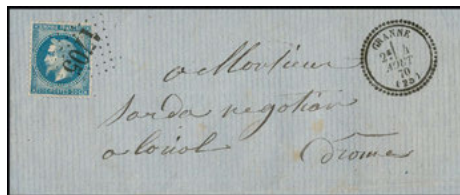 1705
GRANNE
2E
4
AOUT
70
(25)
a Monsieur
Sarda negotian
a loriol Drome